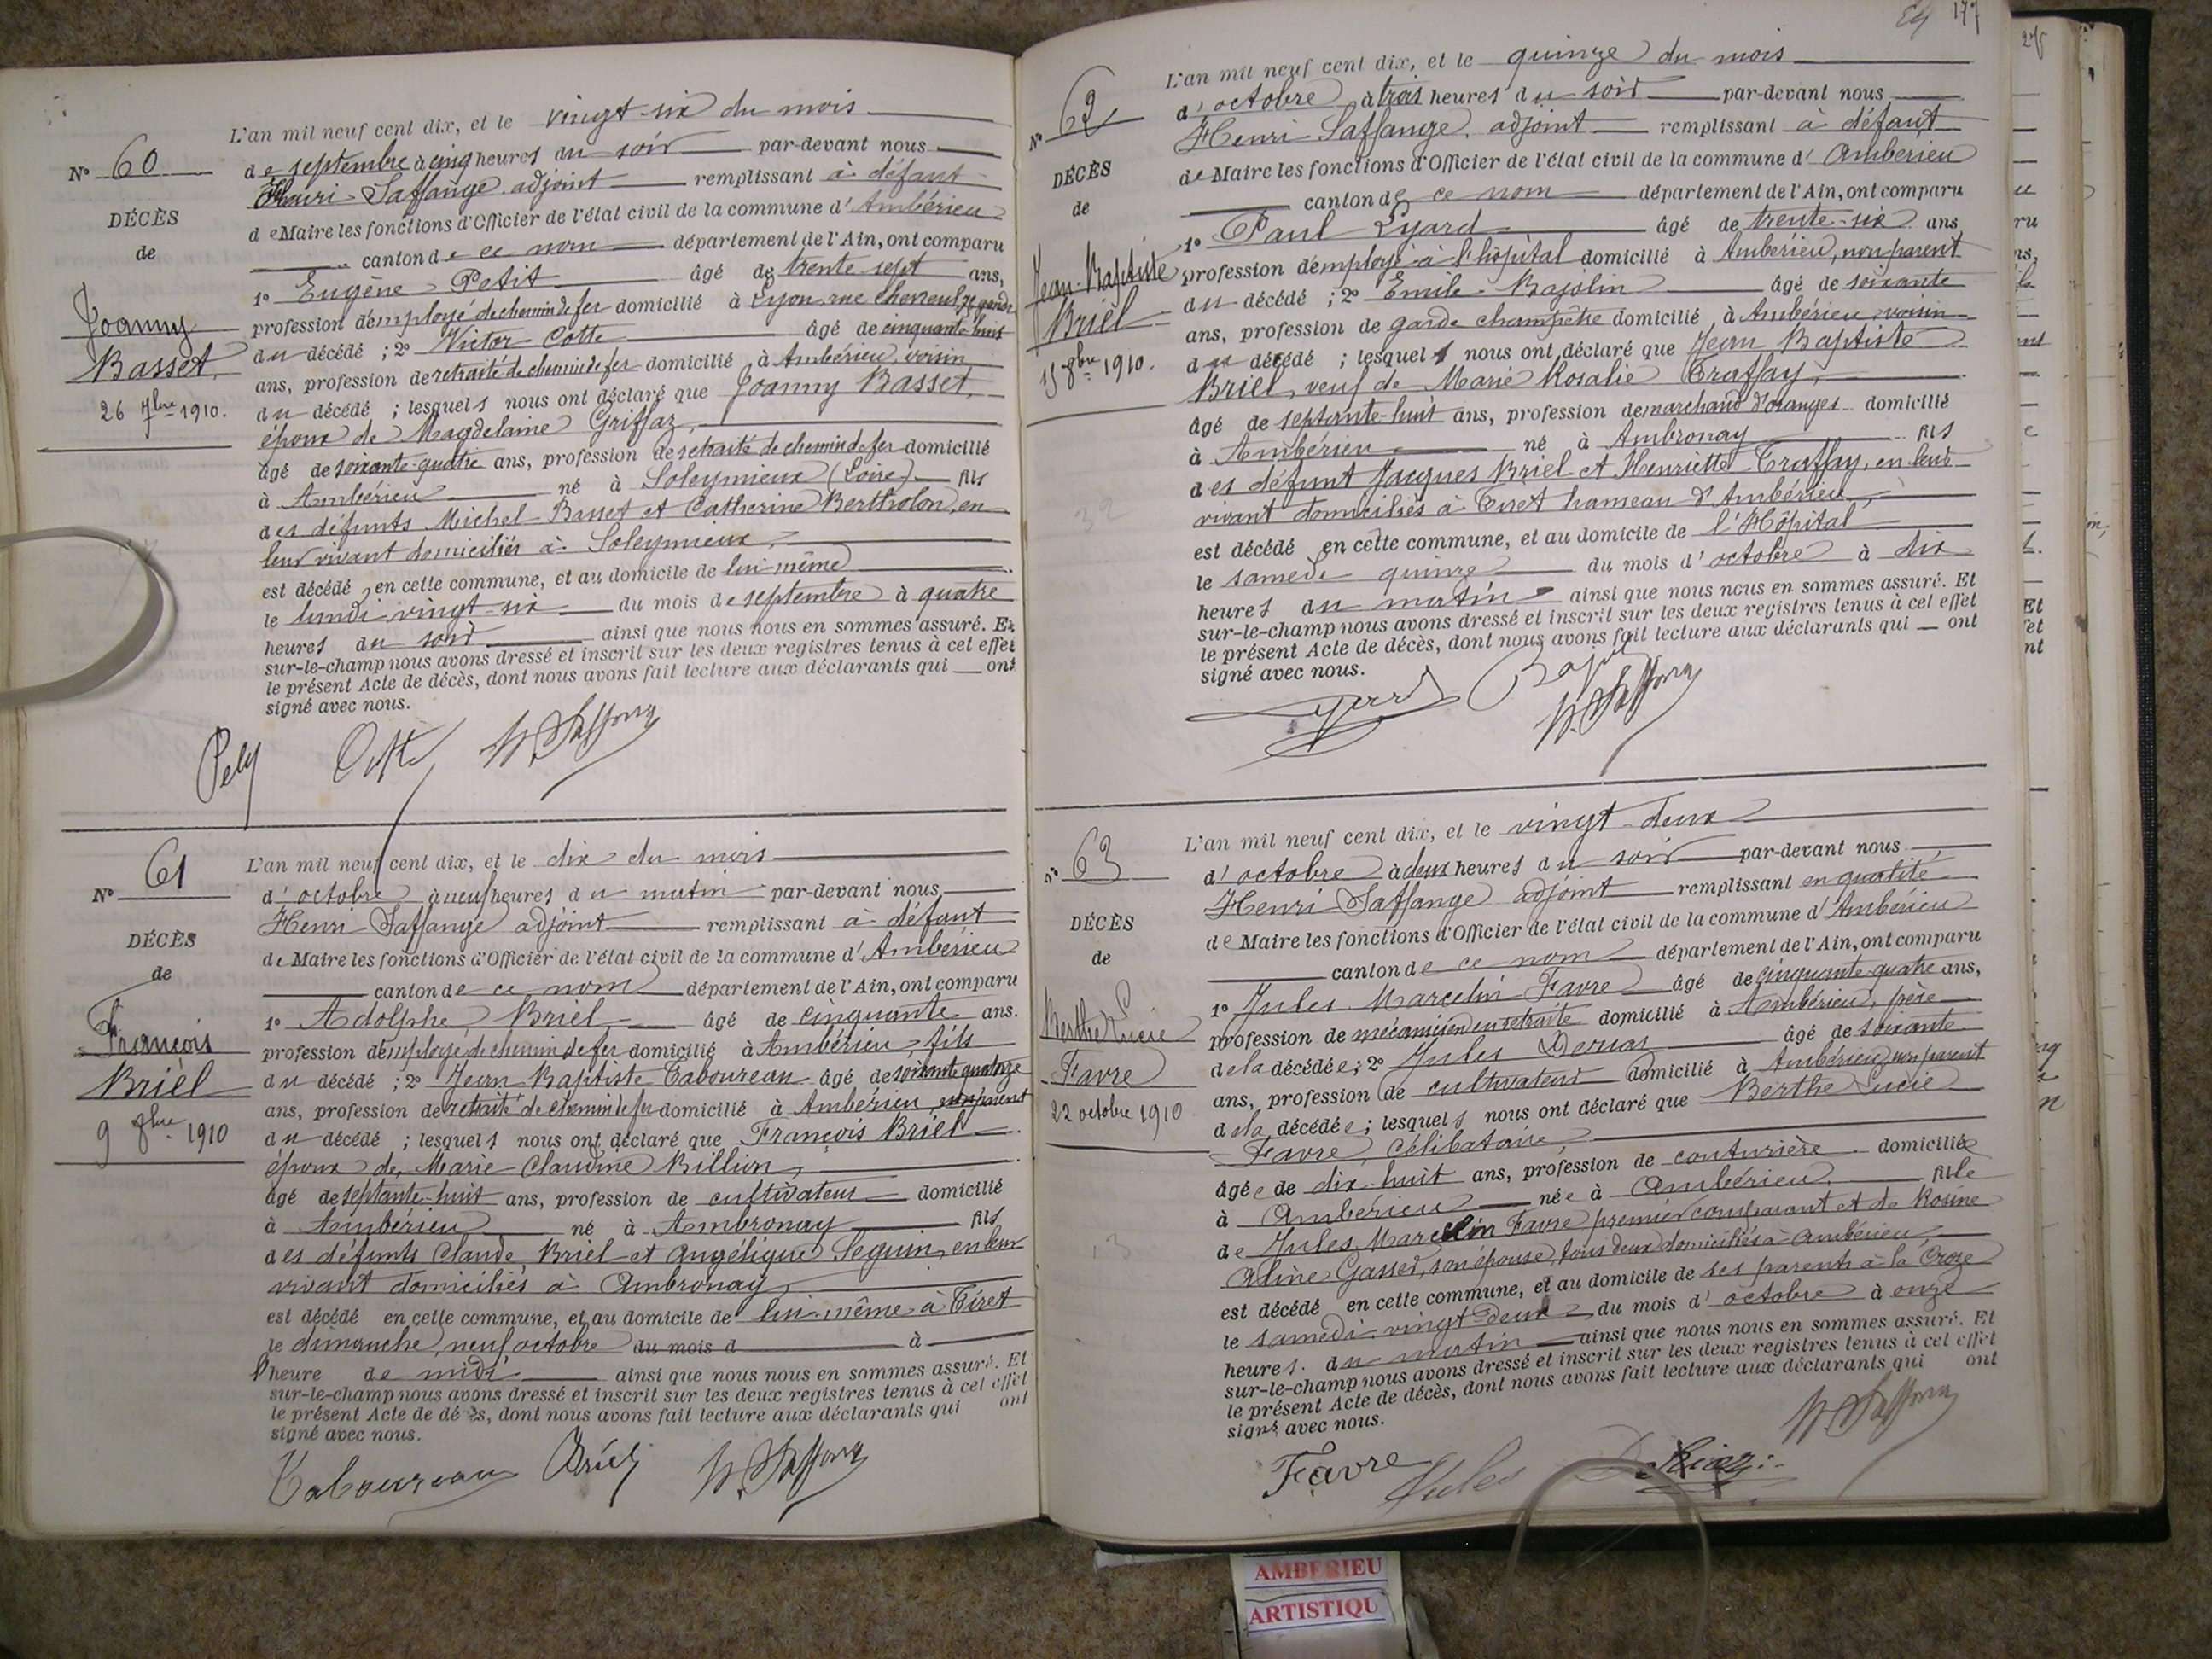 N° 60
DÉCÈS
de
Joanny
Basset
26 7bre 1910.
L'an mil neuf cent dix, et le vingt-six du mois
de septembre à cinq heures du soir par-devant nous
Henri Laffange adjoint remplissant à défaut
de Maire les fonctions d'Officier de l'état civil de la commune d'Ambérieu
canton de ce nom département de l'Ain, ont comparu
1° Eugène Petit âgé de trente-sept ans,
profession d'employé de chemin de fer domicilié à Lyon rue Chevreul, gendre
du décédé ; 2° Victor Cotte âgé de cinquante-huit
ans, profession de retraité de chemin de fer domicilié à Ambérieu, voisin
du décédé ; lesquels nous ont déclaré que Joanny Basset,
époux de Magdelaine Griffaz,
âgé de soixante-quatre ans, profession de retraité de chemin de fer domicilié
à Ambérieu né à Soleymieux (Loire) fils
des défunts Michel Basset et Catherine Bertholon, en
leur vivant domiciliés à Soleymieux,
est décédé en cette commune, et au domicile de lui-même
le lundi vingt-six du mois de septembre à quatre
heures du soir ainsi que nous nous en sommes assuré. Et
sur-le-champ nous avons dressé et inscrit sur les deux registres tenus à cet effet
le présent Acte de décès, dont nous avons fait lecture aux déclarants qui ont
signé avec nous.
H. Laffange
N° 61
DÉCÈS
de
François
Briel
9 8bre 1910
L'an mil neuf cent dix, et le dix du mois
d'octobre à neuf heures du matin par-devant nous
Henri Laffange adjoint remplissant à défaut
de Maire les fonctions d'Officier de l'état civil de la commune d'Ambérieu
canton de ce nom département de l'Ain, ont comparu
1° Adolphe Briel âgé de cinquante ans.
profession d'employé de chemin de fer domicilié à Ambérieu, fils
du décédé ; 2° Jean Baptiste Taboureau âgé de soixante-quatorze
ans, profession de retraité de chemin de fer domicilié à Ambérieu non parent
du décédé ; lesquels nous ont déclaré que François Briel
époux de Marie Claudine Billion,
âgé de septante-huit ans, profession de cultivateur domicilié
à Ambérieu né à Ambronay fils
des défunts Claude Briel et Angélique Seguin, en leur
vivant domiciliés à Ambronay,
est décédé en cette commune, et au domicile de lui-même à Tiret
le dimanche, neuf octobre du mois d à
l'heure de midi ainsi que nous nous en sommes assuré. Et
sur-le-champ nous avons dressé et inscrit sur les deux registres tenus à cet effet
le présent Acte de décès, dont nous avons fait lecture aux déclarants qui ont
signé avec nous.
Taboureau Briel H. Laffange
177
N° 62
DÉCÈS
de
Jean-Baptiste
Briel
15 8bre 1910.
L'an mil neuf cent dix, et le quinze du mois
d'octobre à trois heures du soir par-devant nous
Henri Laffange, adjoint remplissant à défaut
de Maire les fonctions d'Officier de l'état civil de la commune d'Amberieu
canton de ce nom département de l'Ain, ont comparu
1° Paul Lyard âgé de trente-six ans,
profession d'employé à l'hôpital domicilié à Ambérieu, non parent
du décédé ; 2° Emile Bajolin âgé de soixante
ans, profession de garde champêtre domicilié à Ambérieu, voisin
du décédé ; lesquels nous ont déclaré que Jean Baptiste
Briel, veuf de Marie Rosalie Truffay,
âgé de septante-huit ans, profession de marchand d'oranges domicilié
à Ambérieu né à Ambronay fils
des défunt Jacques Briel et Henriette Truffay, en leur
vivant domiciliés à Tiret hameau d'Ambérieu,
est décédé en cette commune, et au domicile de l'Hôpital
le samedi quinze du mois d'octobre à dix
heures du matin ainsi que nous nous en sommes assuré. Et
sur-le-champ nous avons dressé et inscrit sur les deux registres tenus à cet effet
le présent Acte de décès, dont nous avons fait lecture aux déclarants qui ont
signé avec nous.
Lyard H. Laffange
N° 63
DÉCÈS
de
Berthe Lucie
Favre
22 octobre 1910
L'an mil neuf cent dix, et le vingt-deux
d'octobre à deux heures du soir par-devant nous
Henri Laffange adjoint remplissant en qualité
de Maire les fonctions d'Officier de l'état civil de la commune d'Ambérieu
canton de ce nom département de l'Ain, ont comparu
1° Jules Marcelin Favre âgé de cinquante-quatre ans,
profession de mécanicien en retraite domicilié à Ambérieu, père
de la décédée ; 2° Jules âgé de soixante
ans, profession de cultivateur domicilié à Ambérieu non parent
de la décédée ; lesquels nous ont déclaré que Berthe Lucie
Favre, célibataire,
âgée de dix-huit ans, profession de couturière domiciliée
à Ambérieu née à Ambérieu, fille
de Jules Marcelin Favre premier comparant et de Rosine
Aline Gasser, son épouse, tous deux domiciliés à Ambérieu
est décédé en cette commune, et au domicile de ses parents à la Croze
le samedi vingt-deux du mois d'octobre à onze
heures du matin ainsi que nous nous en sommes assuré. Et
sur-le-champ nous avons dressé et inscrit sur les deux registres tenus à cet effet
le présent Acte de décès, dont nous avons fait lecture aux déclarants qui ont
signé avec nous.
Favre Jules H. Laffange
AMBERIEU
ARTISTIQU